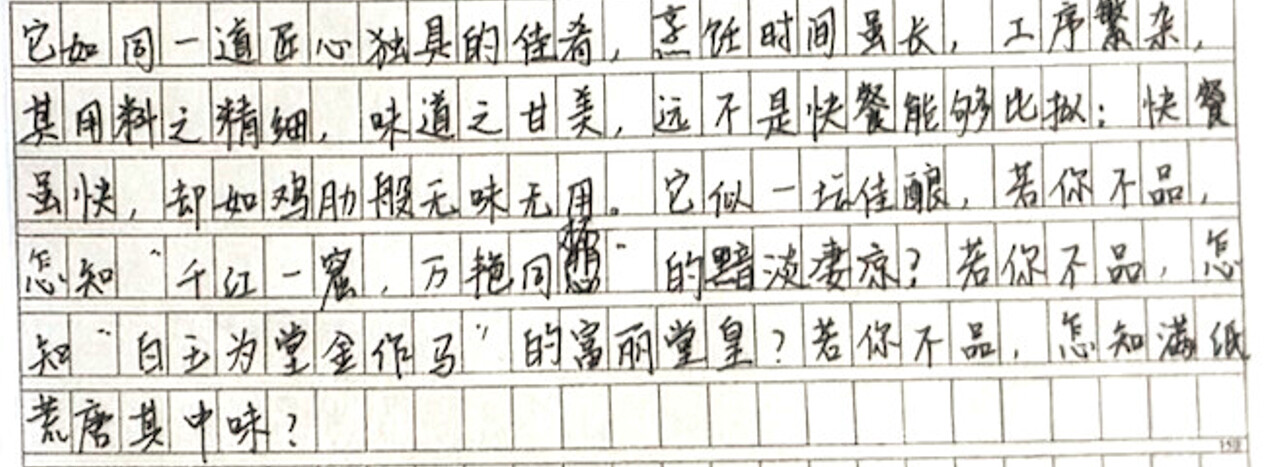 它如同一道匠心独具的佳肴，烹饪时间虽长，工序繁杂，
其用料之精细，味道之甘美，远不是快餐能够比拟；快餐
虽快，却如鸡肋般无味无用。它似一坛佳酿，若你不品，
怎知“千红一窟，万艳同”的黯淡凄凉？若你不品，怎
知“白玉为堂金作马”的富丽堂皇？若你不品，怎知满纸
荒唐其中味？